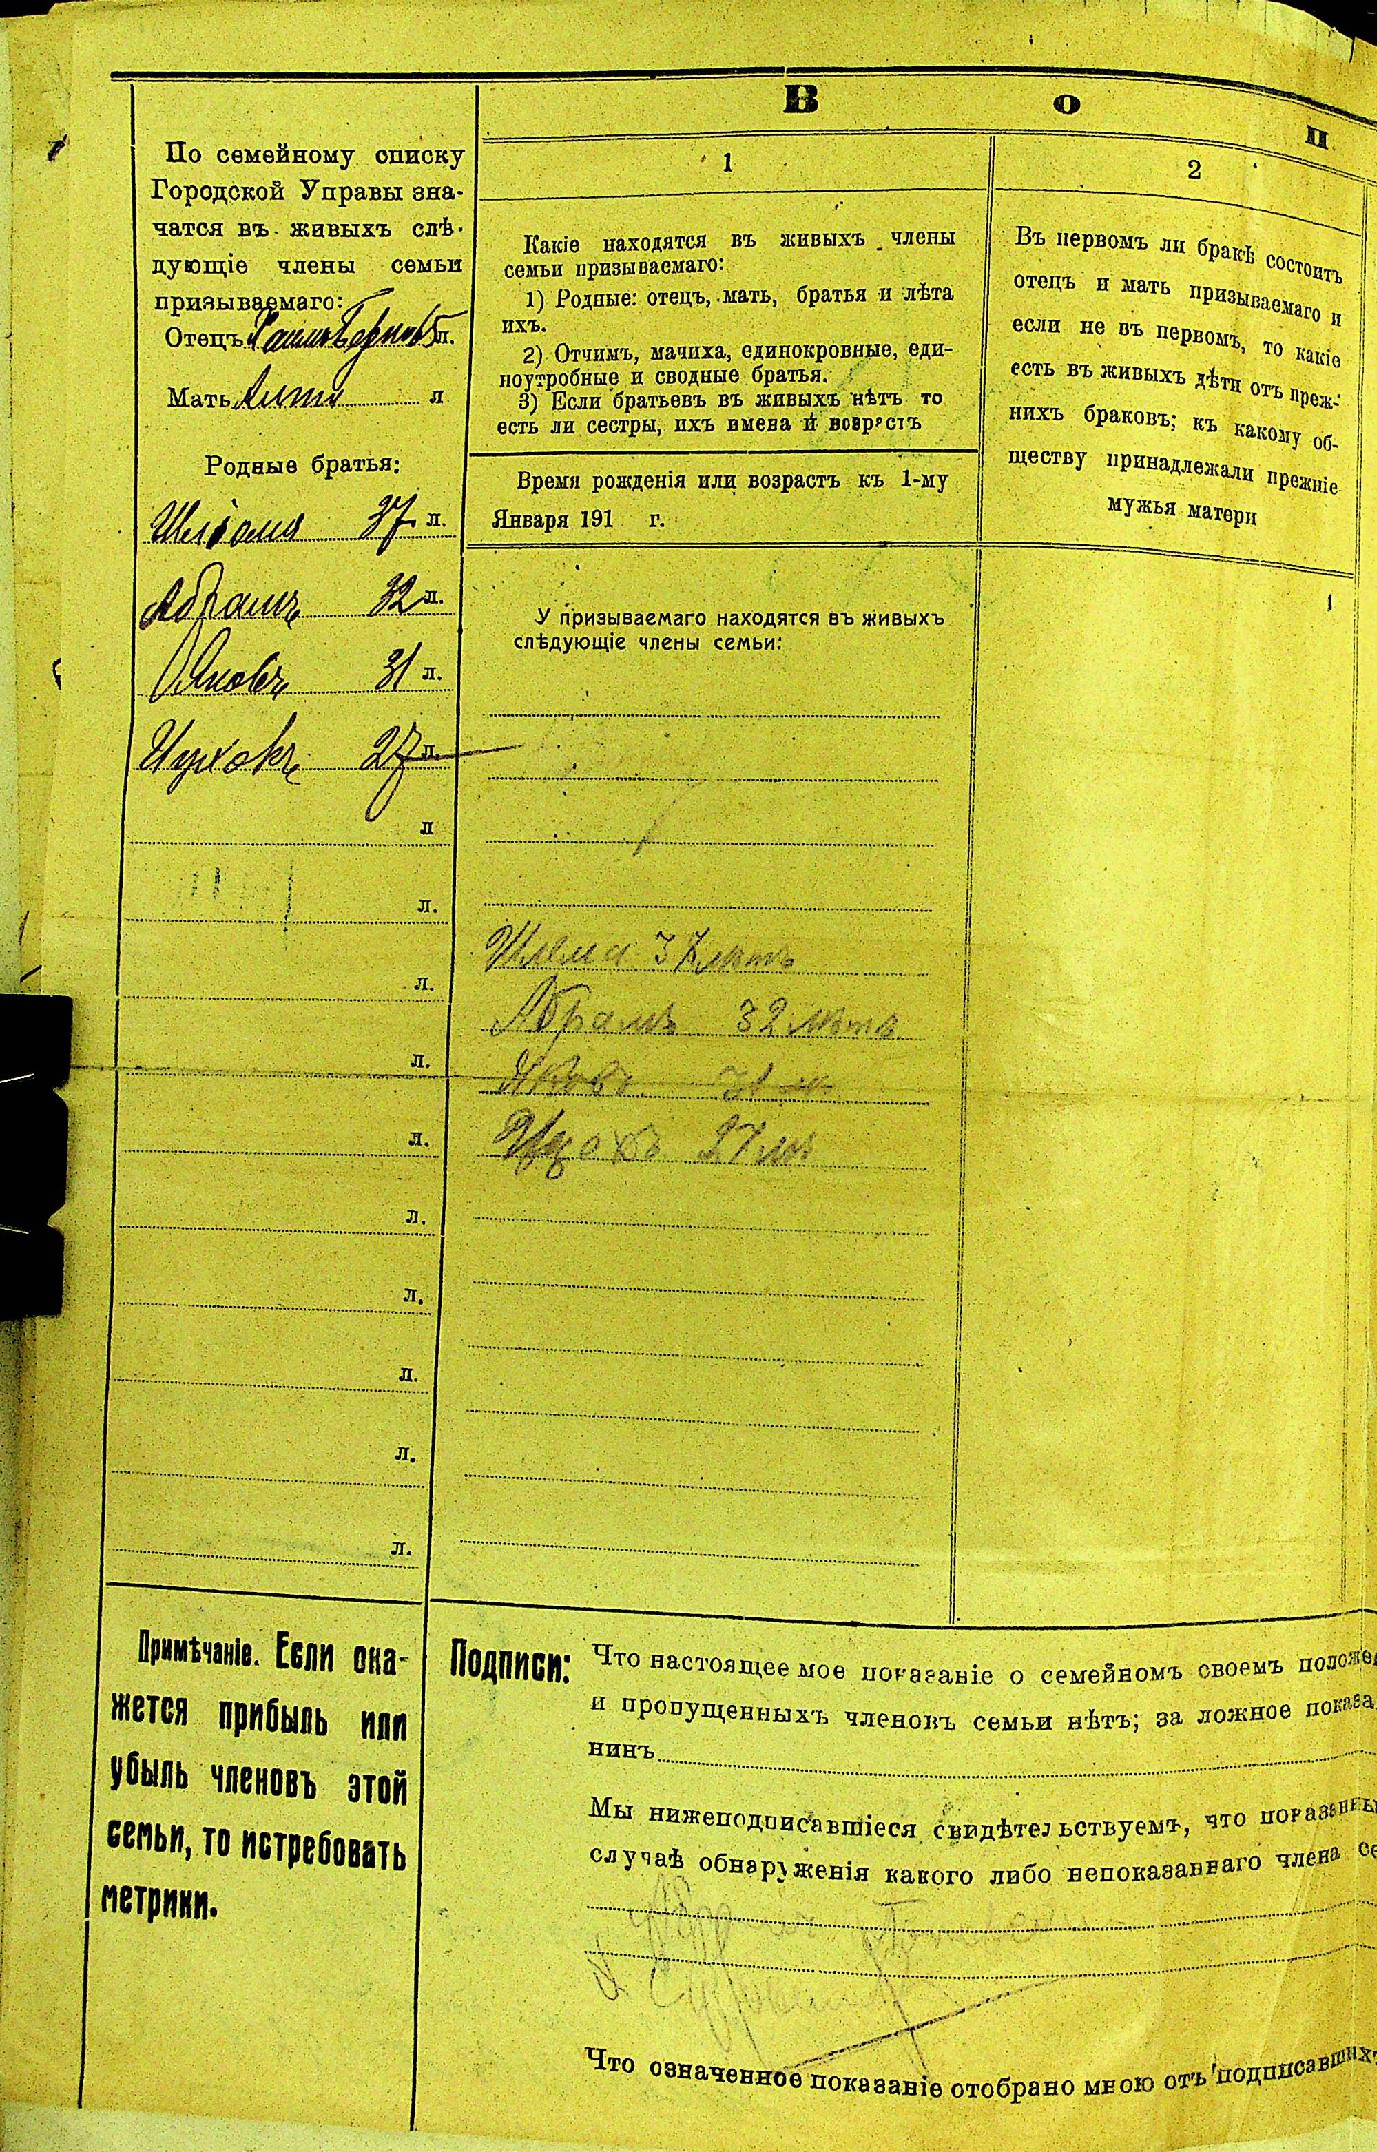 В о п
По семейному списку
Городской Управы зна-
чатся въ живыхъ слѣ-
дующіе члены семьи
призываемаго:
Отецъ л.
Мать л
Родные братья:
Шлома 37 л.
Абрамъ 32 л.
Яковъ 31 л.
Ицхокъ 27 л.
л
л.
л.
л.
л.
л.
л.
л.
л.
л.
1
Какіе находятся въ живыхъ члены
семьи призываемаго:
1) Родные: отецъ, мать, братья и лѣта
ихъ.
2) Отчимъ, мачиха, единокровные, еди-
ноутробные и сводные братья.
3) Если братьевъ въ живыхъ нѣтъ то
есть ли сестры, ихъ имена и возрастъ
Время рожденія или возрастъ къ 1-му
Января 191 г.
У призываемаго находятся въ живыхъ
слѣдующіе члены семьи:
Шлема 37 лѣтъ
Абрамъ 32 лѣтъ
Яковъ 31 л.
Ицхокъ 27 лѣ
2
Въ первомъ ли бракѣ состоитъ
отецъ и мать призываемаго и
если не въ первомъ, то какіе
есть въ живыхъ дѣти отъ преж-
нихъ браковъ; къ какому об-
ществу принадлежали прежніе
мужья матери
1
Примѣчаніе. Если ока-
жется прибыль или
убыль членовъ этой
семьи, то истребовать
метрики.
Подписи: Что настоящее мое показаніе о семейномъ своемъ положе
и пропущенныхъ членовъ семьи нѣтъ; за ложное показа
нинъ
Мы нижеподписавшіеся свидѣтельствуемъ, что показанны
случаѣ обнаруженія какого либо непоказаннаго члена се
Что означенное показаніе отобрано мною отъ подписавшихъ